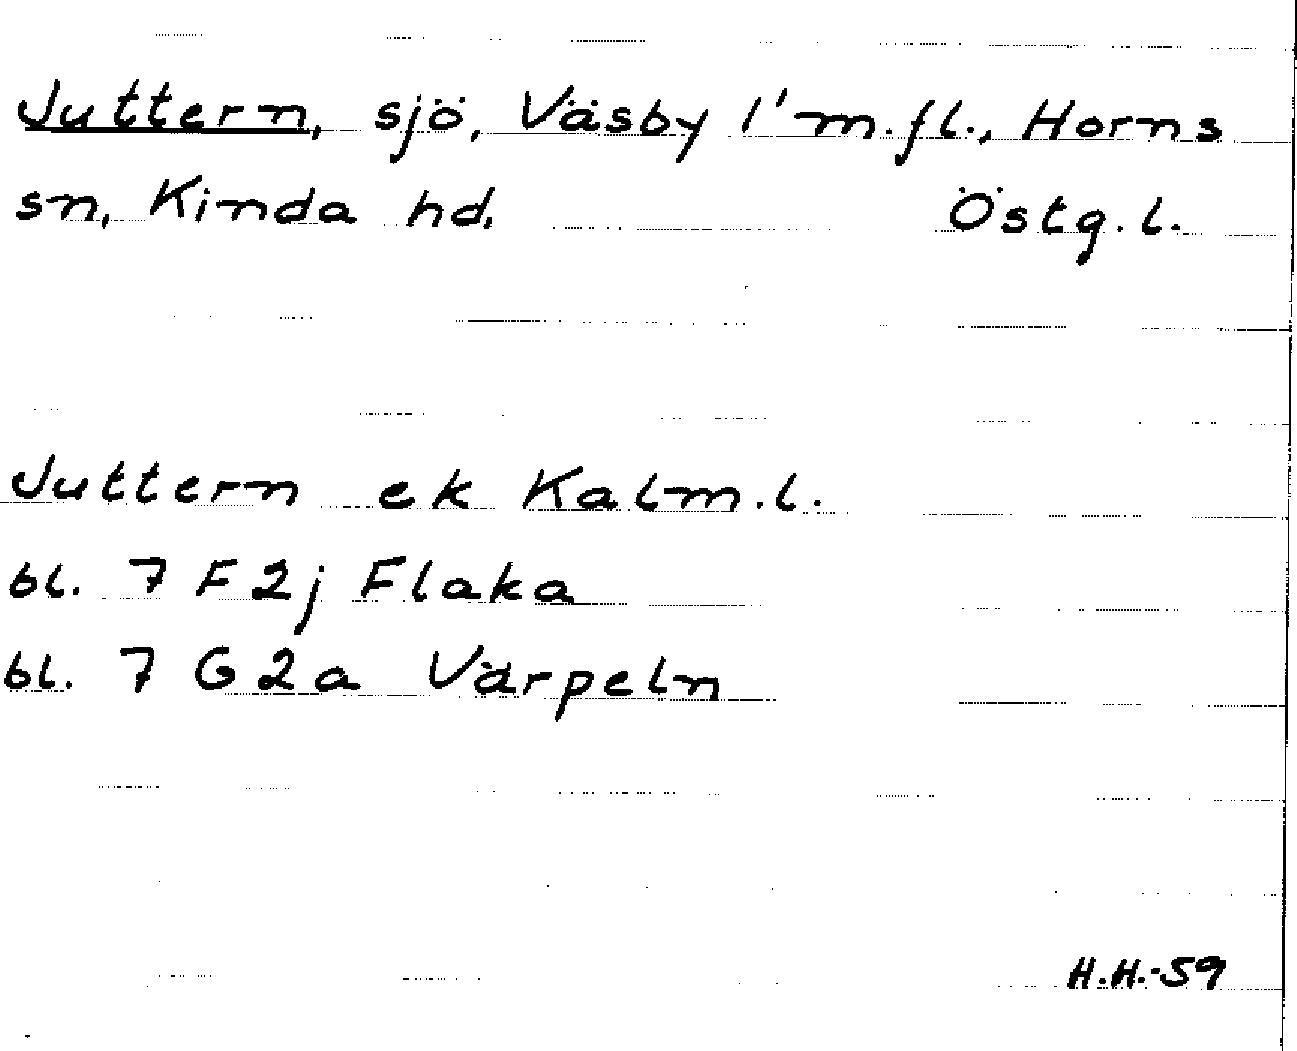 Juttern, sjö, Väsby 1' m.fl., Horns
sn, Kinda hd. Östg.l.
Juttern ek Kalm.l.
bl. 7 F 2j Flaka
bl. 7 G 2a Värpeln
H.H.-59